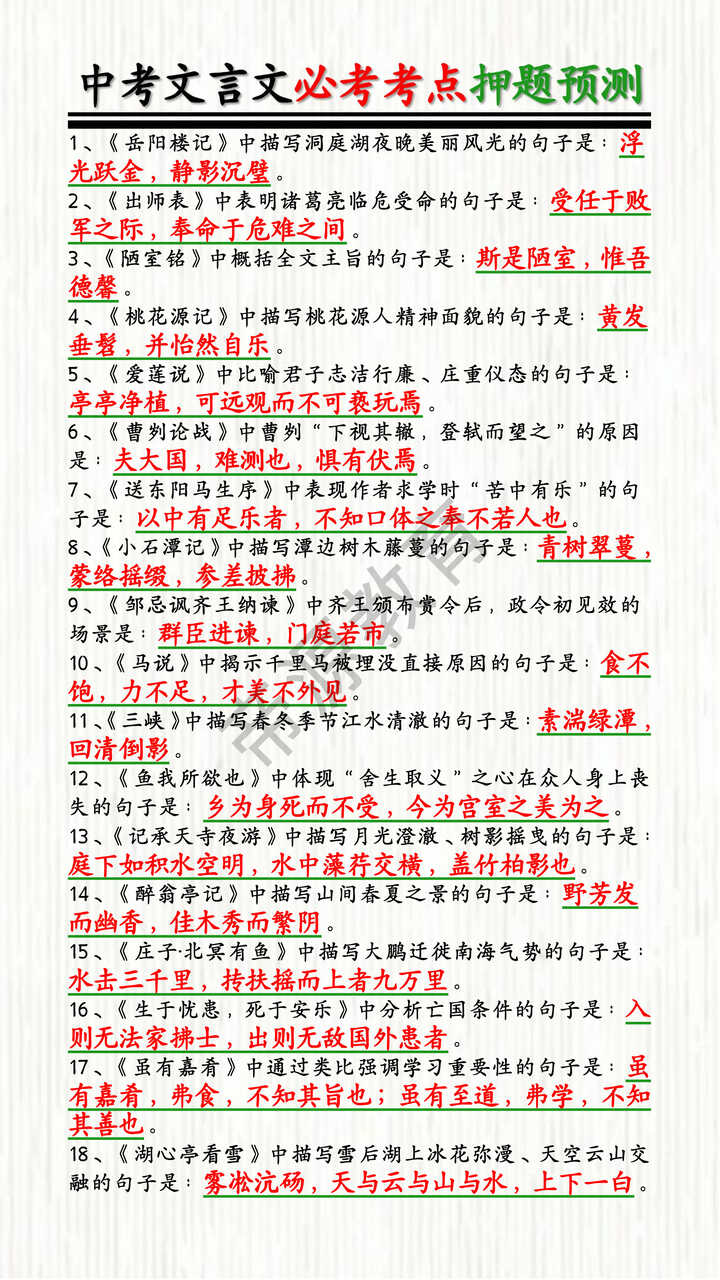 中考文言文必考考点押题预测
1、《岳阳楼记》中描写洞庭湖夜晚美丽风光的句子是：浮
光跃金，静影沉璧。
2、《出师表》中表明诸葛亮临危受命的句子是：受任于败
军之际，奉命于危难之间。
3、《陋室铭》中概括全文主旨的句子是：斯是陋室，惟吾
德馨。
4、《桃花源记》中描写桃花源人精神面貌的句子是：黄发
垂髫，并怡然自乐。
5、《爱莲说》中比喻君子志洁行廉、庄重仪态的句子是：
亭亭净植，可远观而不可亵玩焉。
6、《曹刿论战》中曹刿“下视其辙，登轼而望之”的原因
是：夫大国，难测也，惧有伏焉。
7、《送东阳马生序》中表现作者求学时“苦中有乐”的句
子是：以中有足乐者，不知口体之奉不若人也。
8、《小石潭记》中描写潭边树木藤蔓的句子是：青树翠蔓，
蒙络摇缀，参差披拂。
9、《邹忌讽齐王纳谏》中齐王颁布赏令后，政令初见效的
场景是：群臣进谏，门庭若市。
10、《马说》中揭示千里马被埋没直接原因的句子是：食不
饱，力不足，才美不外见。
11、《三峡》中描写春冬季节江水清澈的句子是：素湍绿潭，
回清倒影。
12、《鱼我所欲也》中体现“舍生取义”之心在众人身上丧
失的句子是：乡为身死而不受，今为宫室之美为之。
13、《记承天寺夜游》中描写月光澄澈、树影摇曳的句子是：
庭下如积水空明，水中藻荇交横，盖竹柏影也。
14、《醉翁亭记》中描写山间春夏之景的句子是：野芳发
而幽香，佳木秀而繁阴。
15、《庄子·北冥有鱼》中描写大鹏迁徙南海气势的句子是：
水击三千里，抟扶摇而上者九万里。
16、《生于忧患，死于安乐》中分析亡国条件的句子是：入
则无法家拂士，出则无敌国外患者。
17、《虽有嘉肴》中通过类比强调学习重要性的句子是：虽
有嘉肴，弗食，不知其旨也；虽有至道，弗学，不知
其善也。
18、《湖心亭看雪》中描写雪后湖上冰花弥漫、天空云山交
融的句子是：雾凇沆砀，天与云与山与水，上下一白。
帝源教育